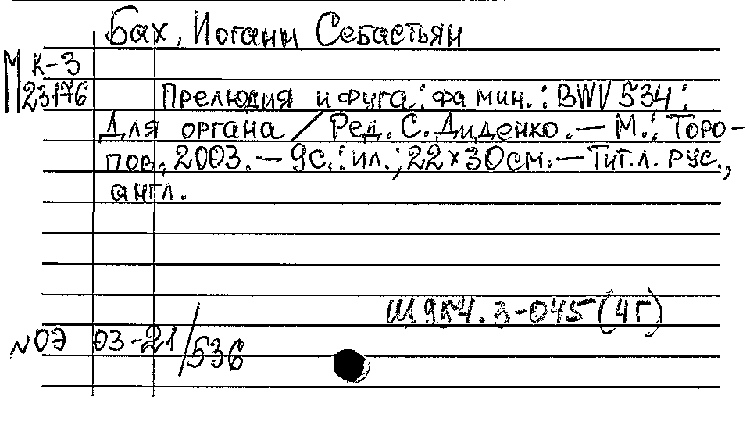 Бах, Иоганн Себастьян
М К-3
23176
Прелюдия и фуга : фа мин. : BWV 534 :
Для органа / Ред. С. Диденко. — М. : Торо-
пов, 2003. — 9 с. : ил. ; 22×30 см. — Тит. л. рус.,
англ.
Щ954.3-045(4Г)
№ОЭ 03-21/536